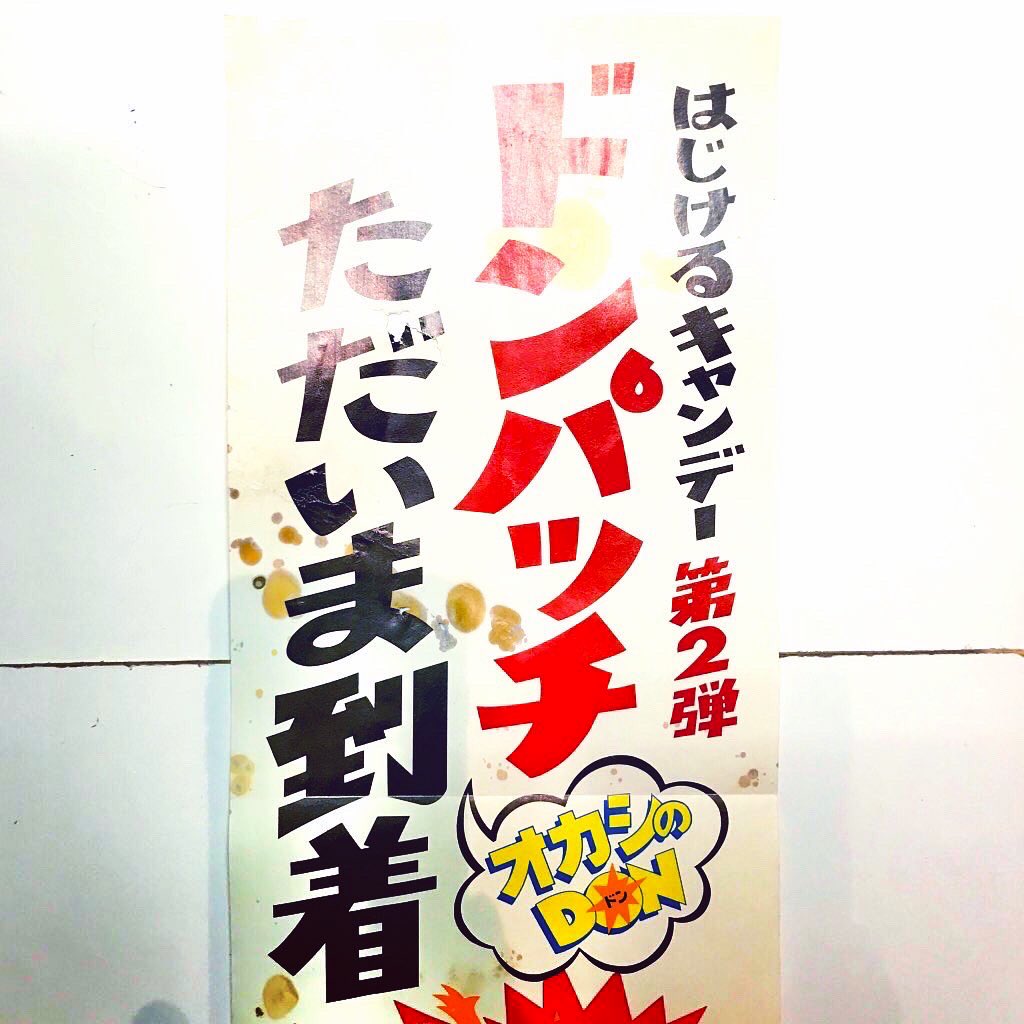 はじけるキャンデー 第2弾
ドンパッチ
ただいま到着
オカシの
DON
ドン